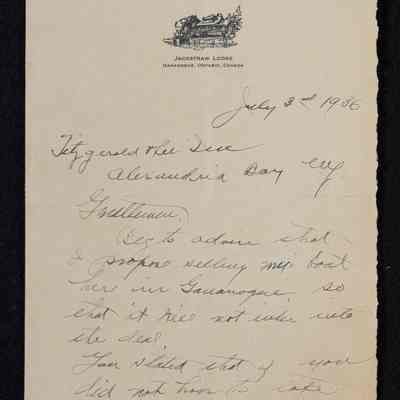 JACKSTRAW LODGE
GANANOQUE, ONTARIO, CANADA
July 3rd 1936
Fitzgerald & Lee Inc
Alexandria Bay NY
Gentlemen,
Beg to advise that
I propose selling my boat
here in Gananoque, so
that it will not enter into
the deal.
You stated that if you
did not have to take